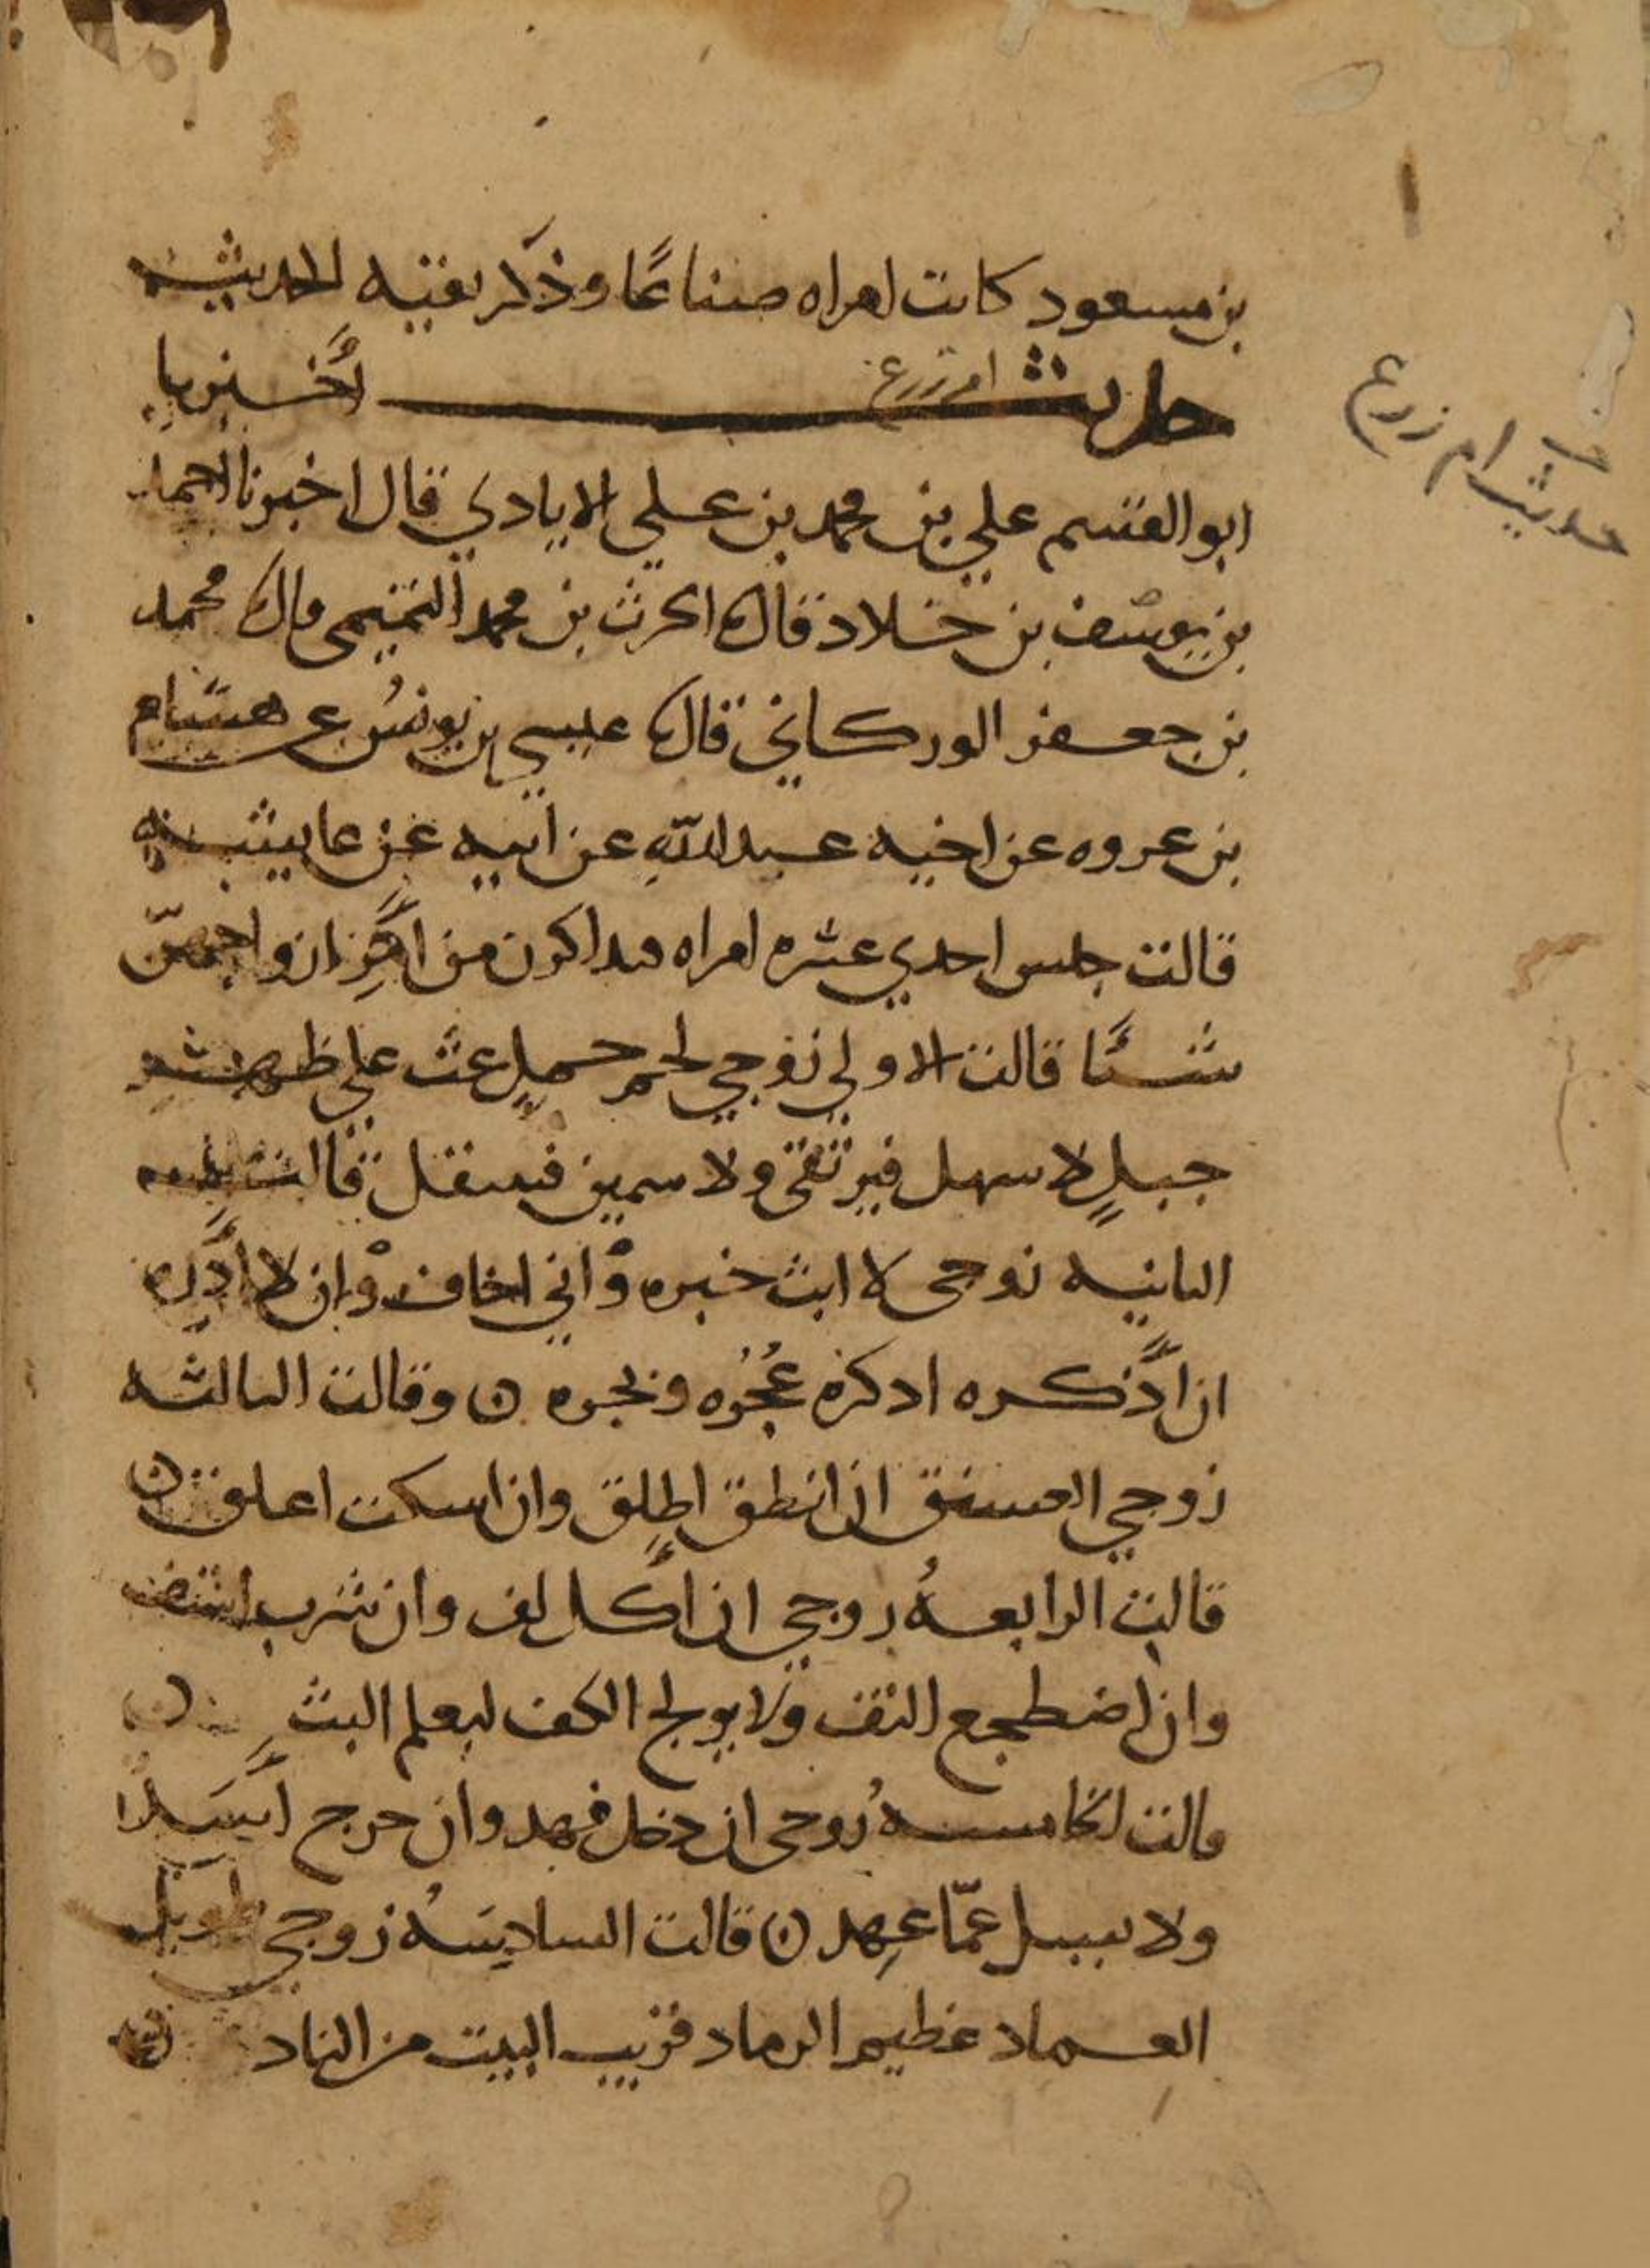 بن مسعود كانت امراه صناعًا وذكر بقيه الحديث
حديث ام زرع اخبرنا
حديث ام زرع
ابو القسم علي بن محمد بن علي الايادي قال اخبرنا احمد
بن يوسف بن خلاد قال الحرث بن محمد التميمي قال محمد
بن جعفر الوركاني قال عيسي بن يونس عن هشام
بن عروه عن اخيه عبد الله عن ابيه عن عايشه
قالت جلس احدي عشره امراه من ازواجهن
شيئًا قالت الاولي زوجي لحم جمل غث علي ظهر
جبلٍ لا سهل فيرتقى ولا سمين فينتقل قالت
الثانيه زوجى لا ابث خبره واني اخاف ان لا اذره
ان اذكره اذكر عُجُره وبجره ن وقالت الثالثه
زوجي العشنق ان انطق اطلق وان اسكت اعلق ن
قالت الرابعهُ زوجي ان اكل لف وان شرب اشتف
وان اضطجع التف ولا يولج الكف ليعلم البث ن
قالت الخامسهُ زوجى ان دخل فهد وان خرج اسد
ولا يسل عمّا عهد ن قالت السادسهُ زوجي طويل
العماد عظيم الرماد قريب البيت من الناد